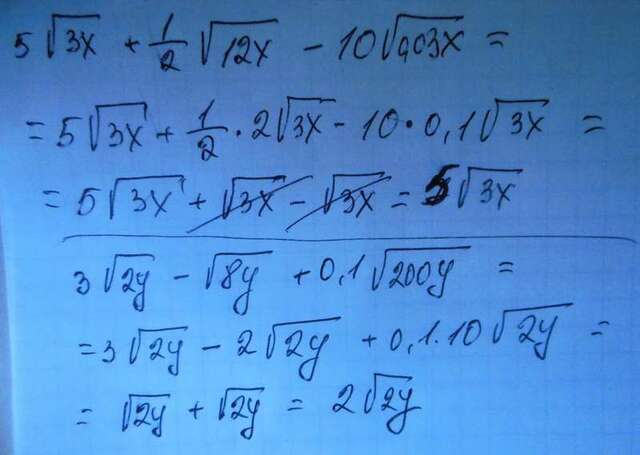 5√3x + 1/2 √12x - 10√0,03x =
= 5√3x + 1/2 · 2√3x - 10 · 0,1√3x =
= 5√3x + √3x - √3x = 5√3x
3√2y - √8y + 0,1√200y =
= 3√2y - 2√2y + 0,1·10√2y =
= √2y + √2y = 2√2y